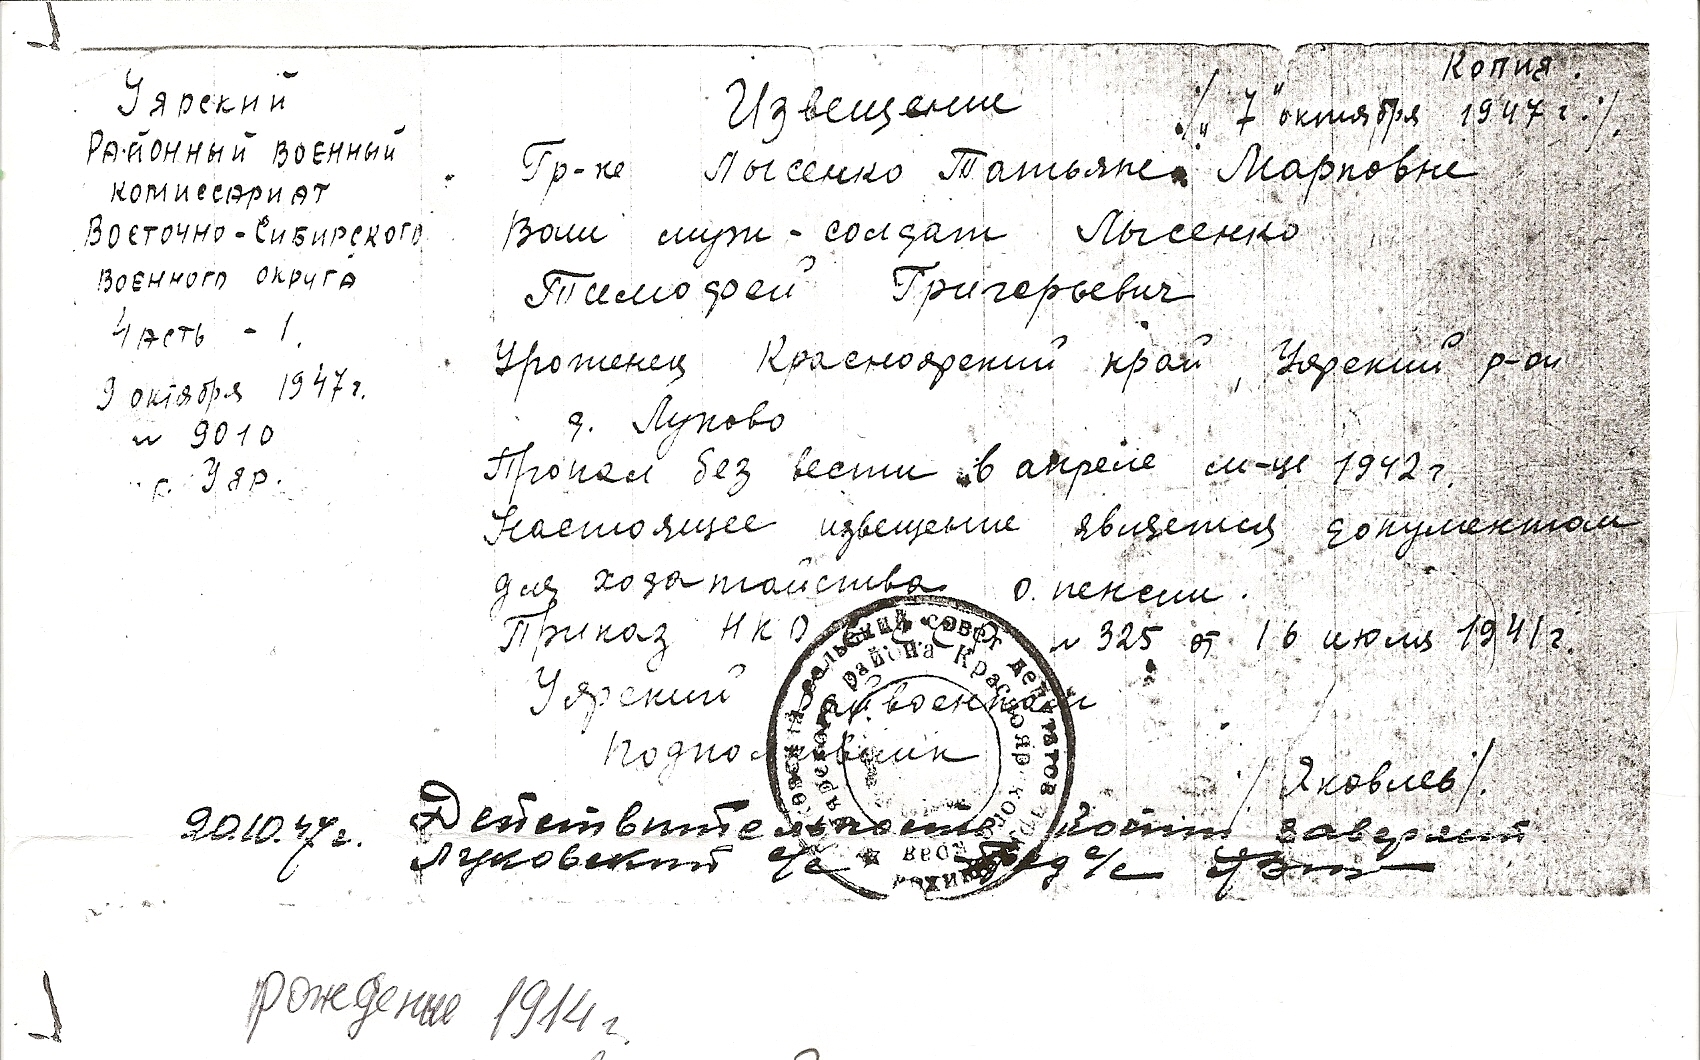 Копия.
Уярский
Районный военный
комиссариат
Восточно-Сибирского
военного округа
Часть - 1.
9 октября 1947г.
№ 9010
г. Уяр.
Извещение ./„7" октября 1947 г./.
Гр-не Лысенко Татьяне Марковне
Ваш муж - солдат Лысенко
Тимофей Григорьевич
Уроженец Красноярский край, Уярский р-он
д. Луково
Пропал без вести в апреле м-це 1942г.
Настоящее извещение является документом
для ходатайства о пенсии.
Приказ НКО № 325 от 16 июля 1941г.
Уярский Райвоенком
Подполковник /Яковлев/.
20.10.47г. Действительность копии заверяет
Луковский с/с Пред с/с
сельский совет депутатов трудящихся
Уярского района Красноярского края
рождение 1914г.